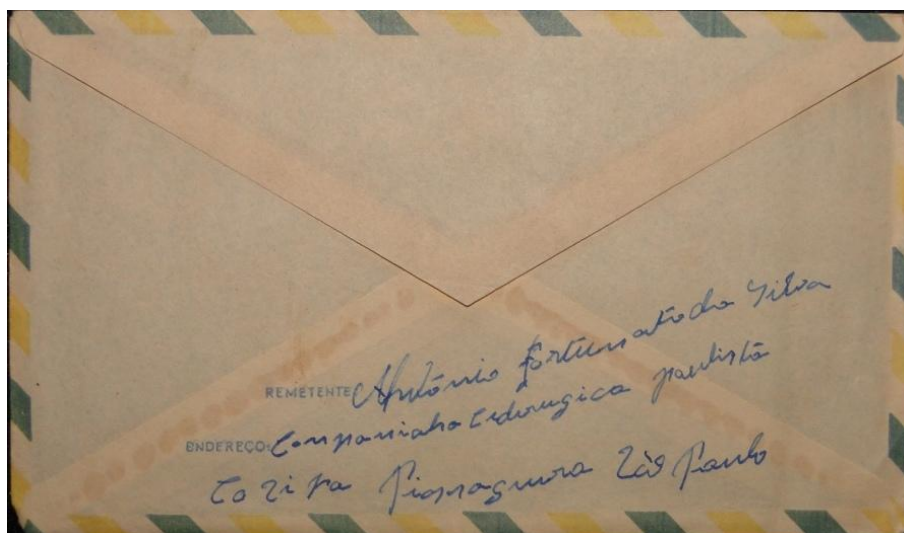 REMETENTE: António fortunato da Silva
ENDEREÇO: Companiaha Cidorugica paulista
Cozipa Piassaguera São Paulo